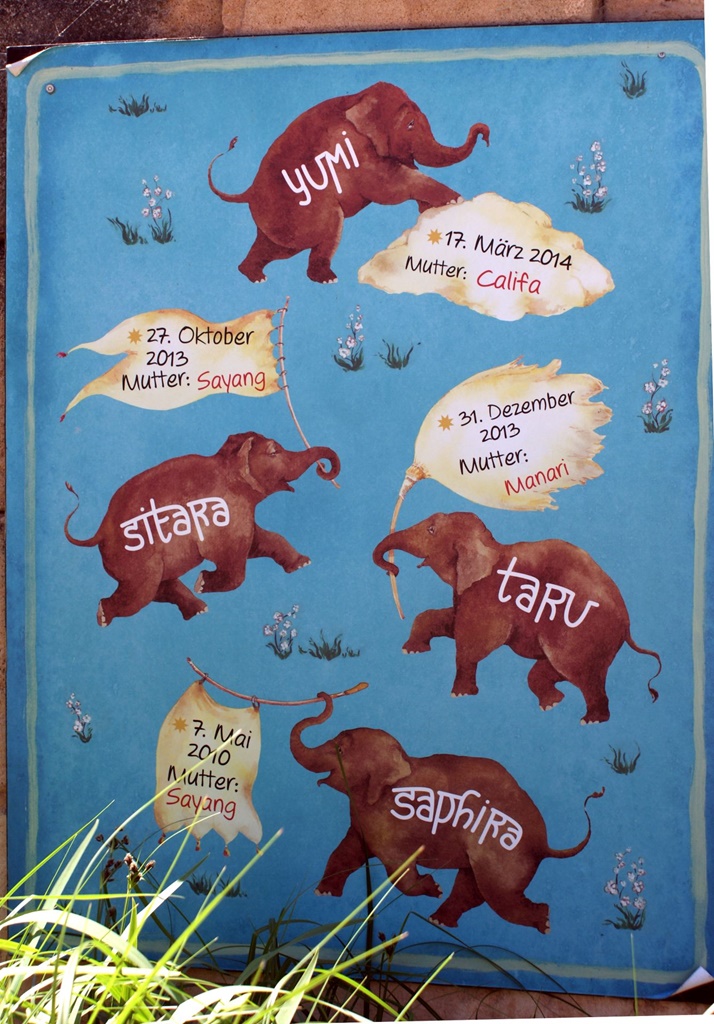 YUMI
17. März 2014
Mutter: Califa
27. Oktober
2013
Mutter: Sayang
SitaRa
31. Dezember
2013
Mutter:
Manari
taRU
7. Mai
2010
Mutter:
Sayang
SaphiRa